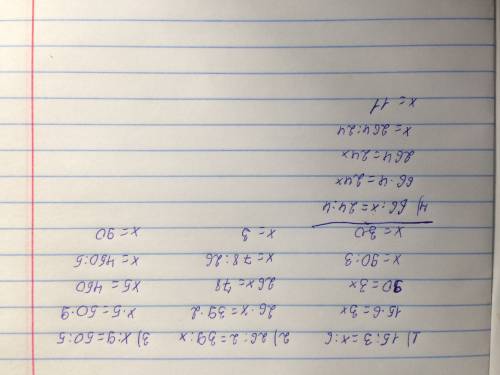 1) 15:3=x:6
15·6=3x
90=3x
x=90:3
x=30
2) 26:2=39:x
26·x=39·2
26x=78
x=78:26
x=3
3) x:9=50:5
x·5=50·9
x5=450
x=450:5
x=90
4) 66:x=24:4
66·4=24x
264=24x
x=264:24
x=11